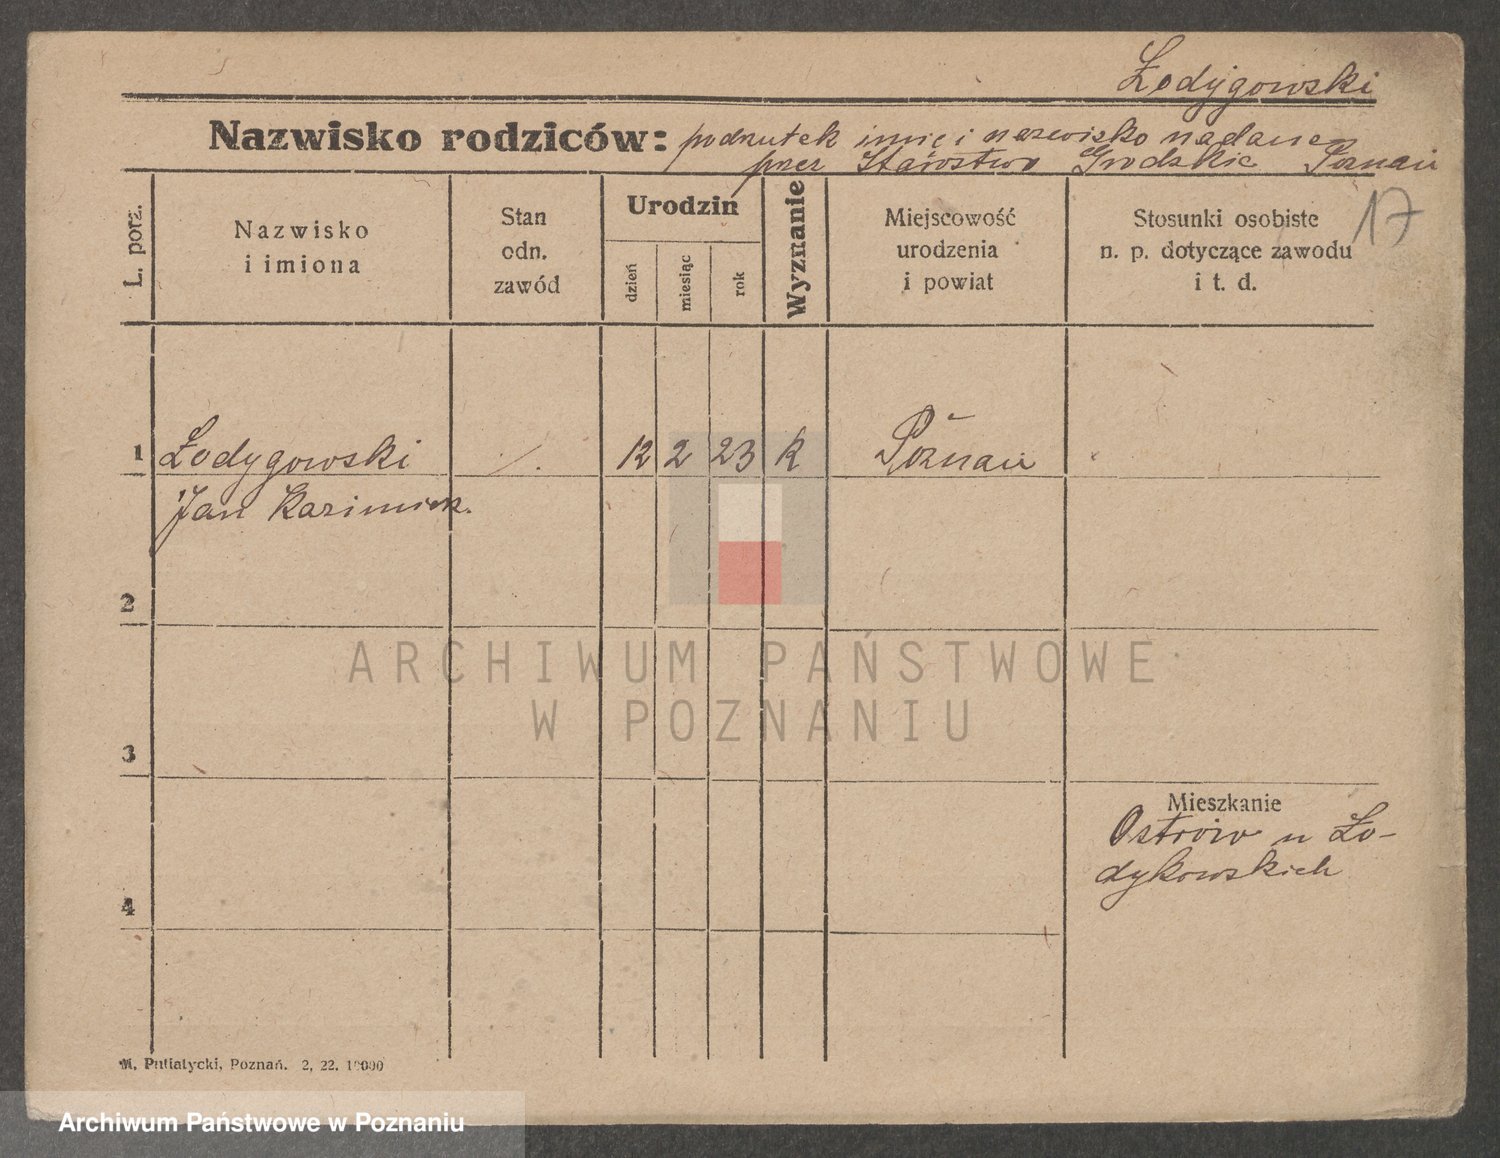 Łodygowski
Nazwisko rodziców: podrzutek imię i nazwisko nadane
przez Starostwo Grodzkie Poznań
L. porz.
Nazwisko
i imiona
Stan
odn.
zawód
Urodzin
dzień
miesiąc
rok
Wyznanie
Miejscowość
urodzenia
i powiat
Stosunki osobiste
n. p. dotyczące zawodu
i t. d.
17
1 Łodygowski 12 2 23 k Poznań
Jan Kazimierz.
2
ARCHIWUM PAŃSTWOWE
W POZNANIU
3
Mieszkanie
Ostrów u Ło-
dykowskich
4
M. Putiatycki, Poznań. 2, 22. 10000
Archiwum Państwowe w Poznaniu